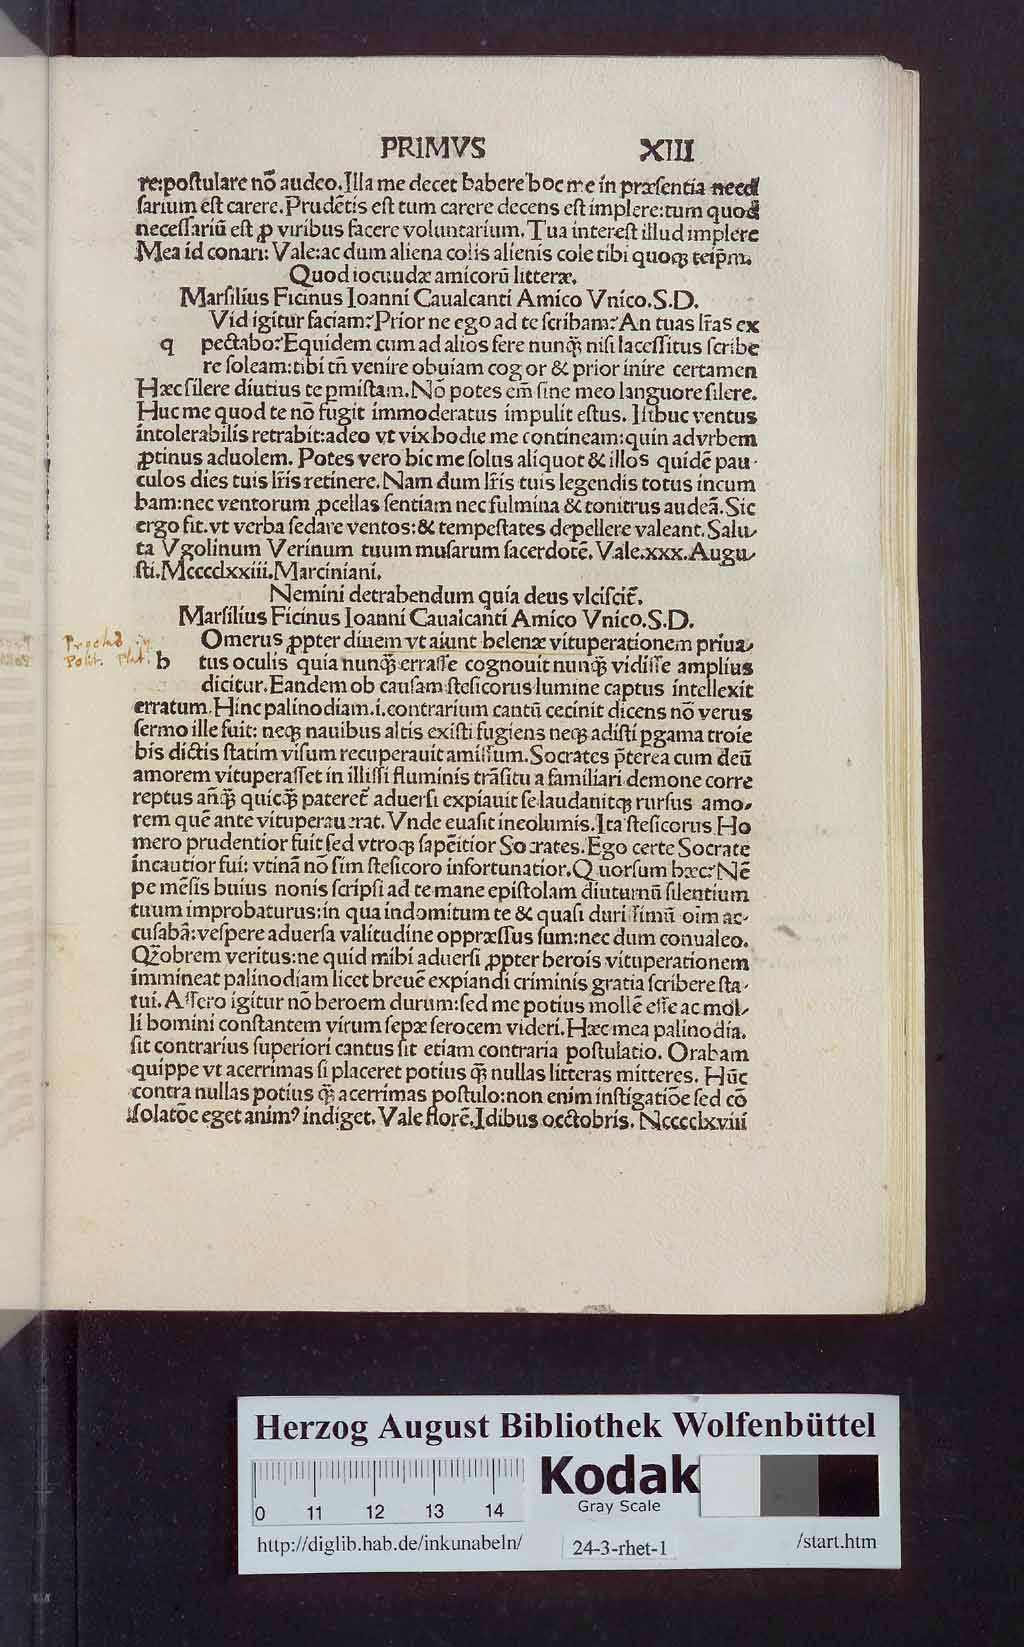 PRIMVS XIII
re:poſtulare nō audeo.Illa me decet habere hoc me in præſentia neceſ
ſarium eſt carere.Prudētis eſt tum carere decens eſt implere:tum quod
neceſſariū eſt ꝓ viribus facere voluntarium.Tua intereſt illud implere
Mea id conari: Vale:ac dum aliena colis alienis cole tibi quoqȝ teip̄m.
Quod iocuudæ amicorū litteræ.
Marſilius Ficinus Ioanni Caualcanti Amico Vnico.S.D.
Vid igitur faciam?Prior ne ego ad te ſcribam?An tuas lr̄as ex
q pectabo?Equidem cum ad alios fere nunqȝ̄ niſi laceſſitus ſcribe
re ſoleam:tibi tn̄ venire obuiam cogor & prior inire certamen
Hæc ſilere diutius te ꝑmiſtam.Nō potes em̄ ſine meo languore ſilere.
Huc me quod te nō fugit immoderatus impulit eſtus. Iſthuc ventus
intolerabilis retrahit:adeo vt vix hodie me contineam:quin ad vrbem
ꝓtinus aduolem. Potes vero hic me ſolus aliquot & illos quidē pau-
culos dies tuis lr̄is retinere.Nam dum lr̄is tuis legendis totus incum
bam:nec ventorum ꝓcellas ſentiam nec fulmina & tonitrus audeā.Sic
ergo fit.vt verba ſedare ventos:& tempeſtates depellere valeant.Salu-
ta Vgolinum Verinum tuum muſarum ſacerdotē.Vale.xxx.Augu-
ſti.Mccccclxxiii.Marciniani.
Nemini detrahendum quia deus vlciſcit̄.
Marſilius Ficinus Ioanni Caualcanti Amico Vnico.S.D.
Omerus ꝓpter diuem vt aiunt helenæ vituperationem priua-
Procl⁹ in
Polit. Plat.
h tus oculis quia nunqȝ̄ erraſſe cognouit nunqȝ̄ vidiſſe amplius
dicitur.Eandem ob cauſam ſteſicorus lumine captus intellexit
erratum.Hinc palinodiam.i.contrarium cantū cecinit dicens nō verus
ſermo ille fuit: neqȝ nauibus altis exiſti fugiens neqȝ adiſti ꝑgama troie
his dictis ſtatim viſum recuperauit amiſſum.Socrates p̄terea cum deū
amorem vituperaſſet in illiſſi fluminis trāſitu a familiari demone corre
reptus an̄qȝ̄ quicqȝ̄ pateret̄ aduerſi expiauit ſe laudauitqȝ rurſus amo-
rem quē ante vituperauerat.Vnde euaſit incolumis.Ita ſteſicorus Ho
mero prudentior fuit ſed vtroqȝ ſapētior Socrates.Ego certe Socrate
incautior fui: vtinā nō ſim ſteſicoro infortunatior.Quorſum hæc?Nē
pe mēſis huius nonis ſcripſi ad te mane epiſtolam diuturnū ſilentium
tuum improbaturus:in qua indomitum te & quaſi duriſſimū oim̄ ac-
cuſabā:veſpere aduerſa valitudine oppræſſus ſum:nec dum conualeo.
Qȝobrem veritus:ne quid mihi aduerſi ꝓpter herois vituperationem
immineat palinodiam licet breuē expiandi criminis gratia ſcribere ſta-
tui.Aſſero igitur nō heroem durum:ſed me potius mollē eſſe ac mol-
li homini conſtantem virum ſepæ ferocem videri.Hæc mea palinodia.
ſit contrarius ſuperiori cantus ſit etiam contraria poſtulatio. Orabam
quippe vt acerrimas ſi placeret potius qȝ̄ nullas litteras mitteres. Hūc
contra nullas potius qȝ̄ acerrimas poſtulo:non enim inſtigatiōe ſed cō
ſolatōe eget anim⁹ indiget.Vale florē.Idibus occtobris. Ncccclxviii
Herzog August Bibliothek Wolfenbüttel
0 11 12 13 14
Kodak
Gray Scale
http://diglib.hab.de/inkunabeln/ 24-3-rhet-1 /start.htm